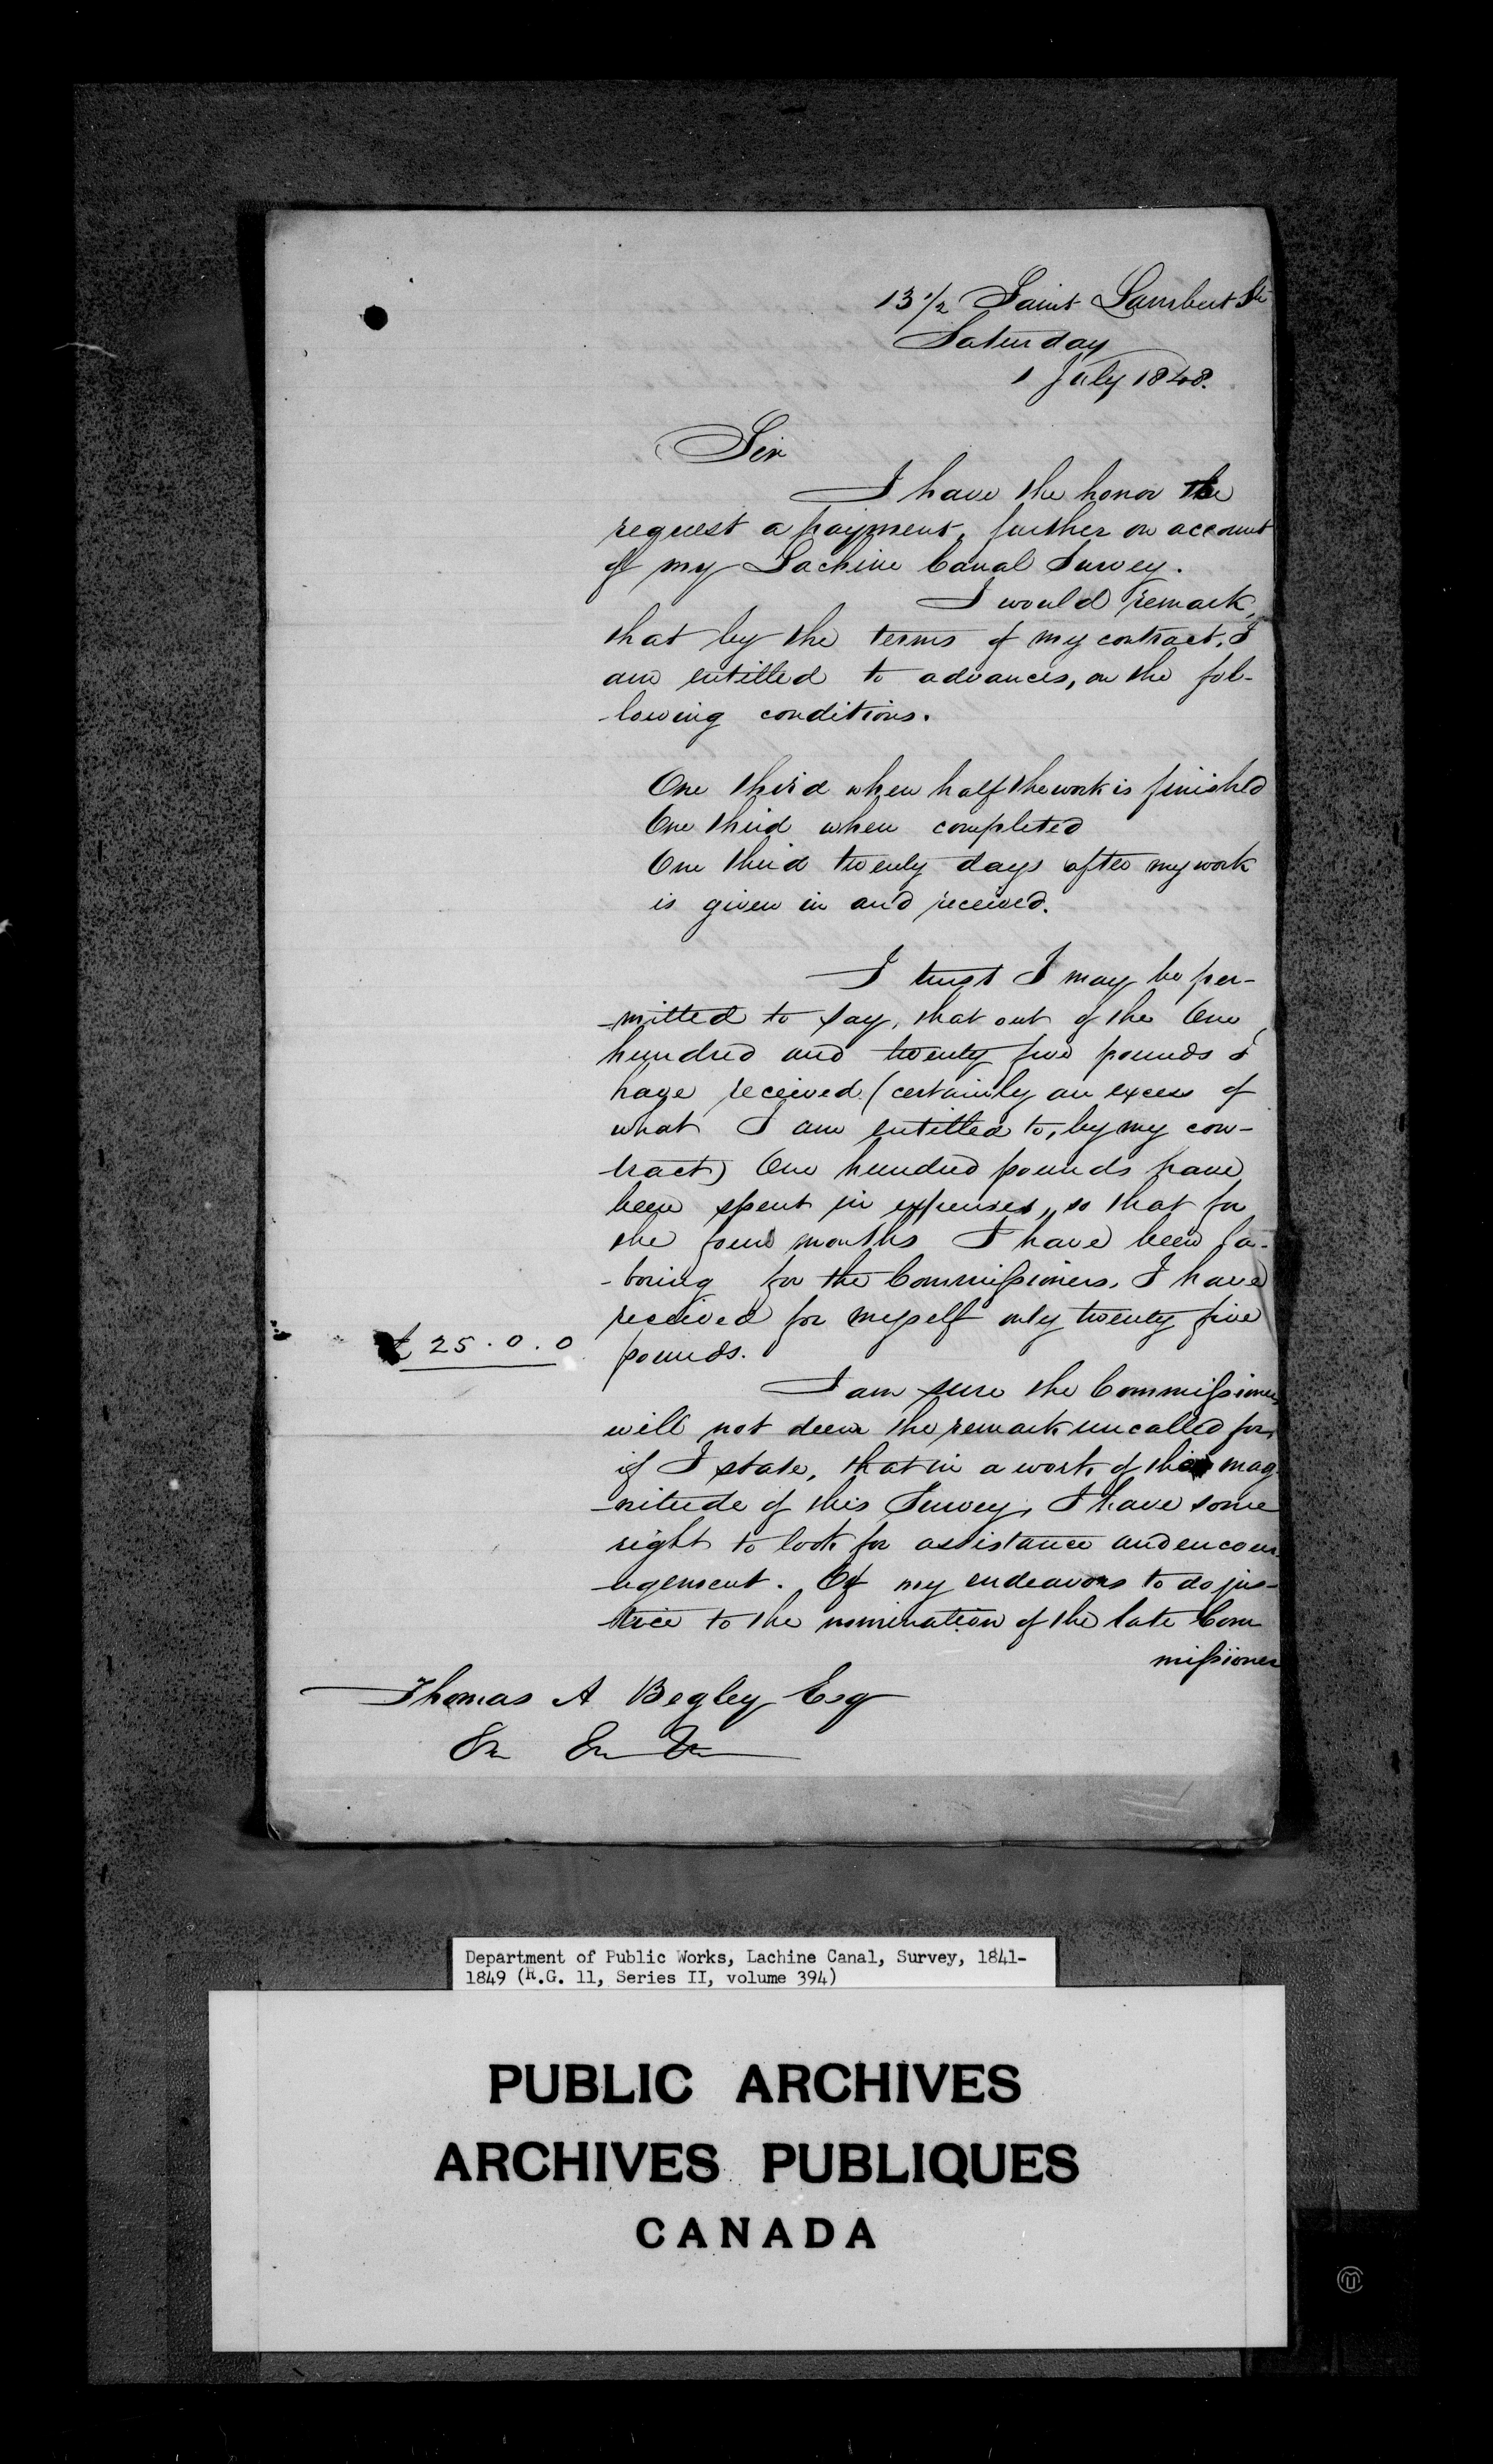 13 1/2 Saint Lambert St
Saturday
1 July 1848.
Sir
I have the honor to
request a payment, further on account
of my Lachine Canal Survey.
I would remark,
that by the terms of my contract, I
am entitled to advances, on the fol-
-lowing conditions.
One third when half the work is finished
One third when completed
One third twenty days after my work
is given in and received.
I trust I may be per-
-mitted to say, that out of the One
hundred and twenty five pounds I
have received (certainly an excess of
what I am entitled to, by my con-
tract) One hundred pounds have
been spent in expenses, so that for
the four months I have been la-
-boring for the Commissioners, I have
received for myself only twenty five
£ 25 . 0 . 0
pounds.
I am sure the Commissioners
will not deem the remark uncalled for,
if I state, that in a work of the mag
-nitude of this Survey, I have some
right to look for assistance and encour
-agement. Of my endeavors to do jus-
-tice to the nomination of the late Com
missioner
Thomas A Begley Esq
Department of Public Works, Lachine Canal, Survey, 1841-
1849 (R.G. 11, Series II, volume 394)
PUBLIC ARCHIVES
ARCHIVES PUBLIQUES
CANADA